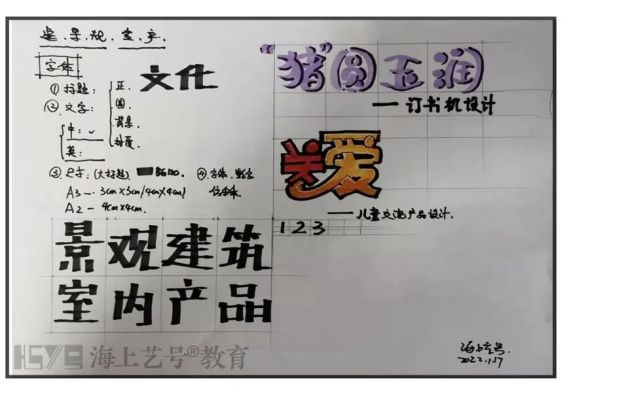 建.景.观.室.产.
字体
文化
① 标题:
② 文字:
正.
圆.
背景.
中:
英:
③ 尺寸:(大标题)
A3 — 3cm×3cm/4cm×4cm/
A2 — 4cm×4cm.
景观建筑
室内产品
"猪"圆玉润
— 订书机设计
关爱
— 儿童交流产品设计.
1 2 3
海上艺号®教育
海上艺号.
2022.1.17